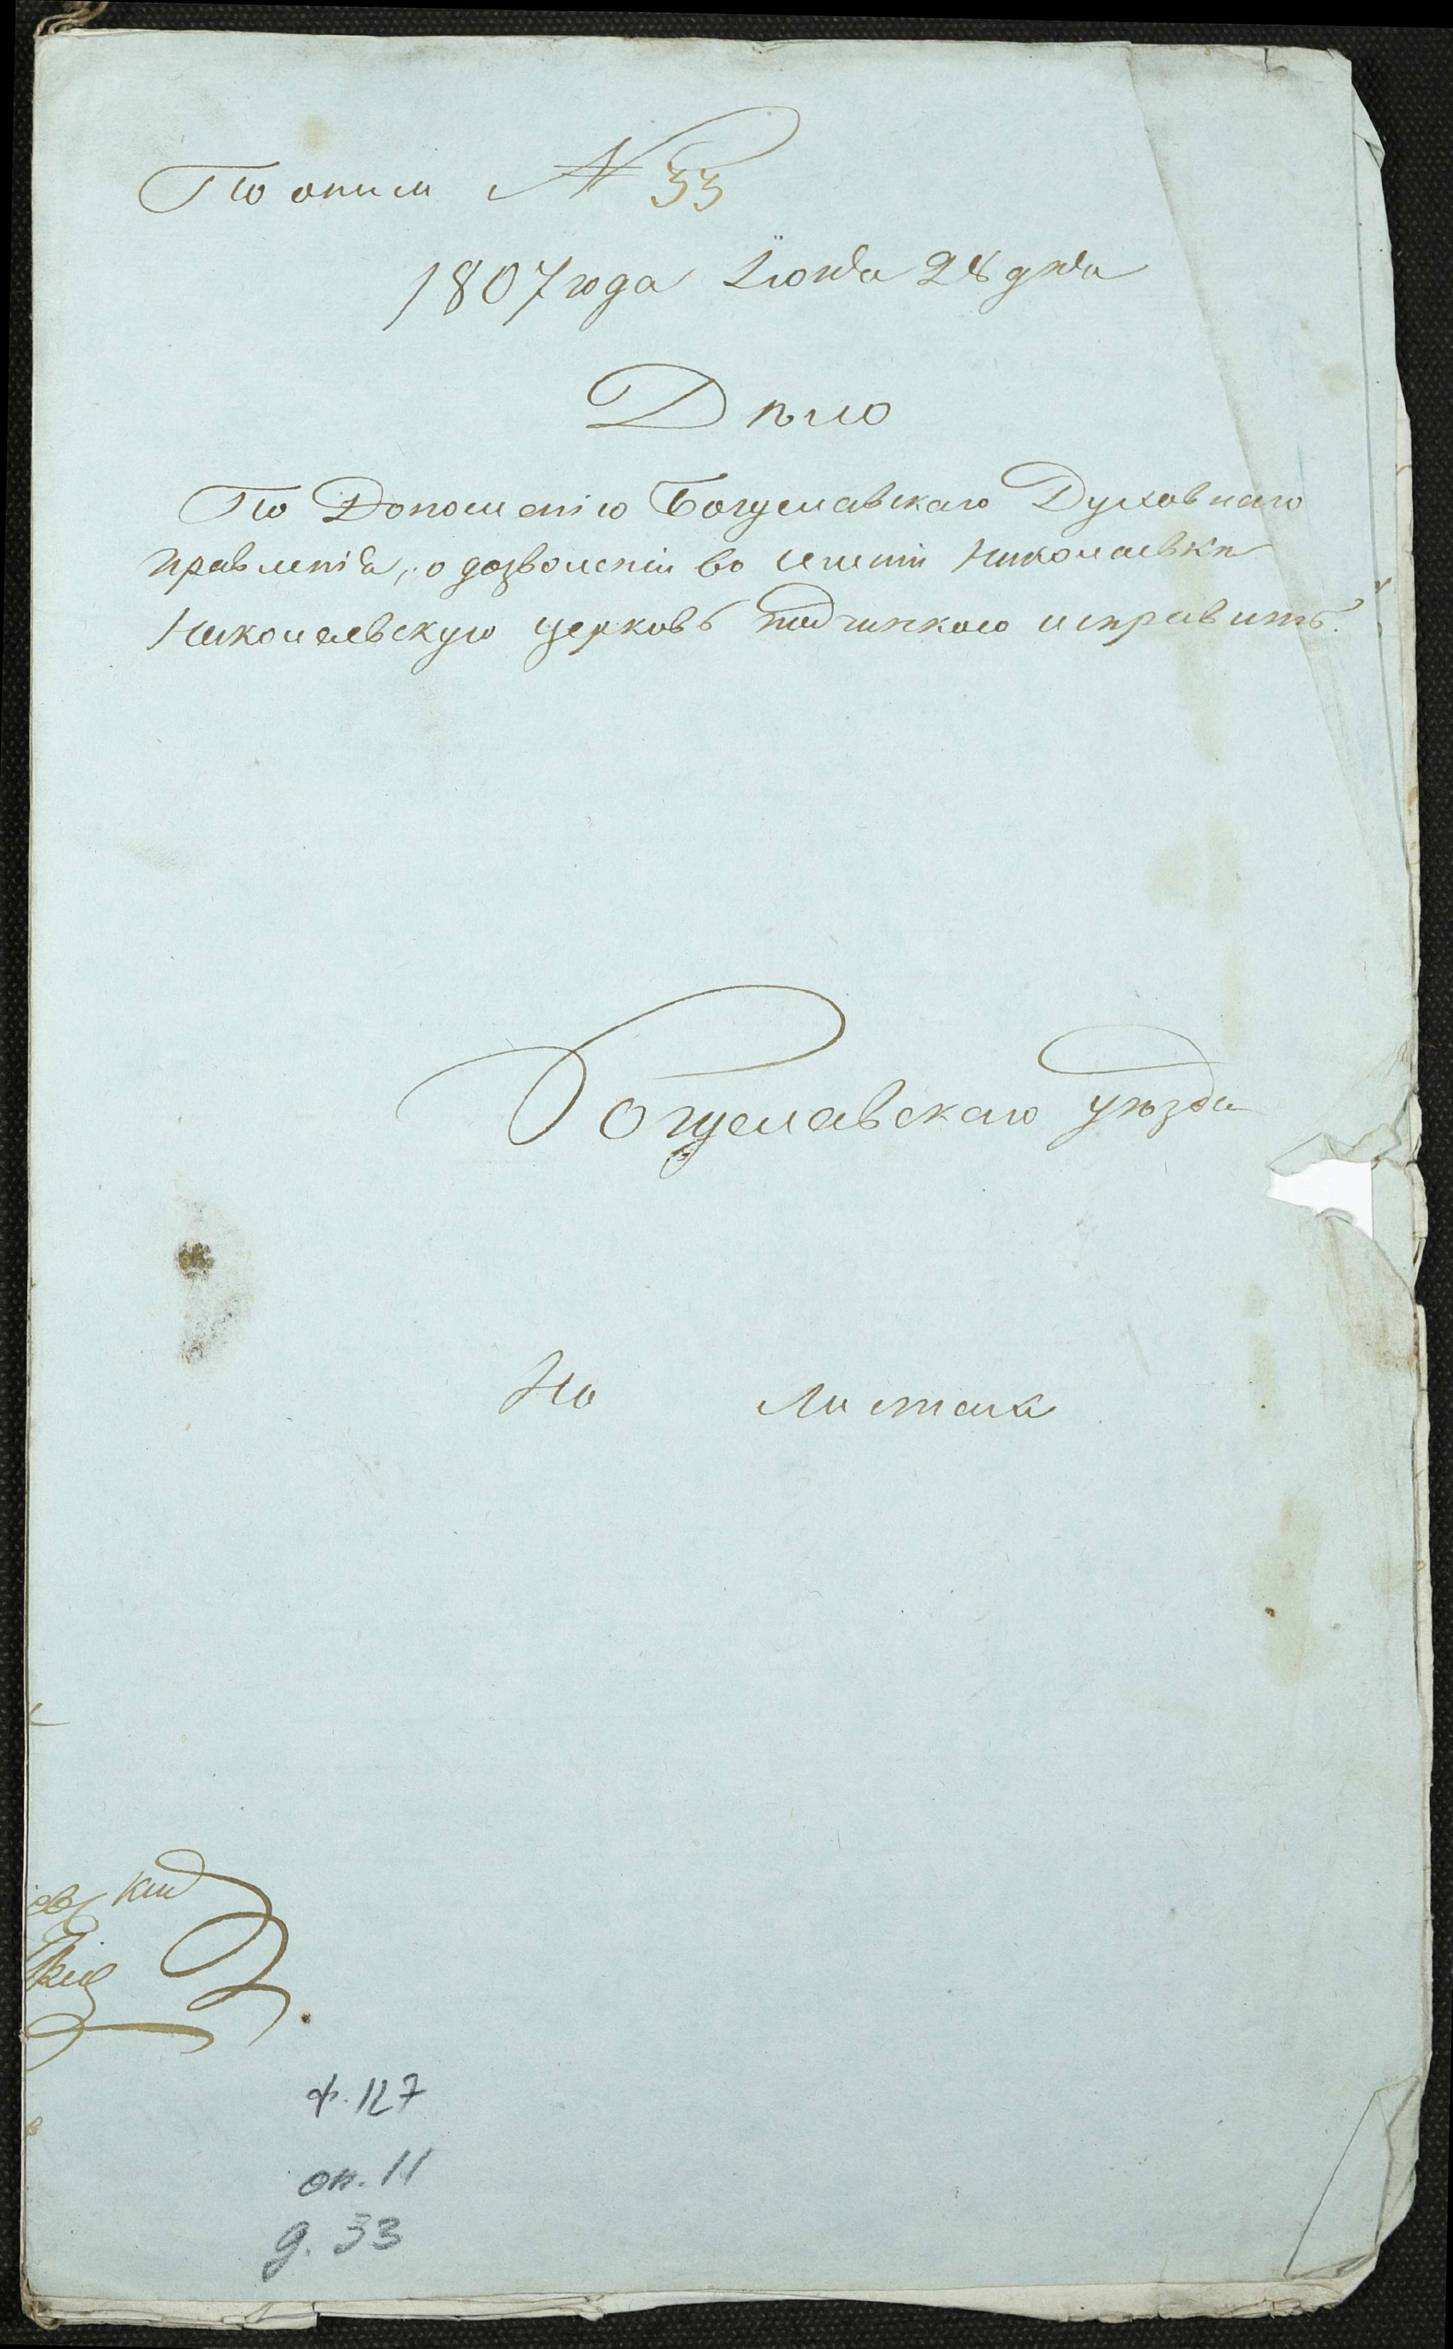 По описи № 33
1807 года Іюня 28 дня
Дѣло
По Доношенію Богуславскаго Духовнаго
правленія, о дозволеніи во селѣ Николаевкѣ
Николаевскую церковь подчинкою исправить.
Богуславскаго уѣзда
На листах
ф. 127
оп. 11
д. 33